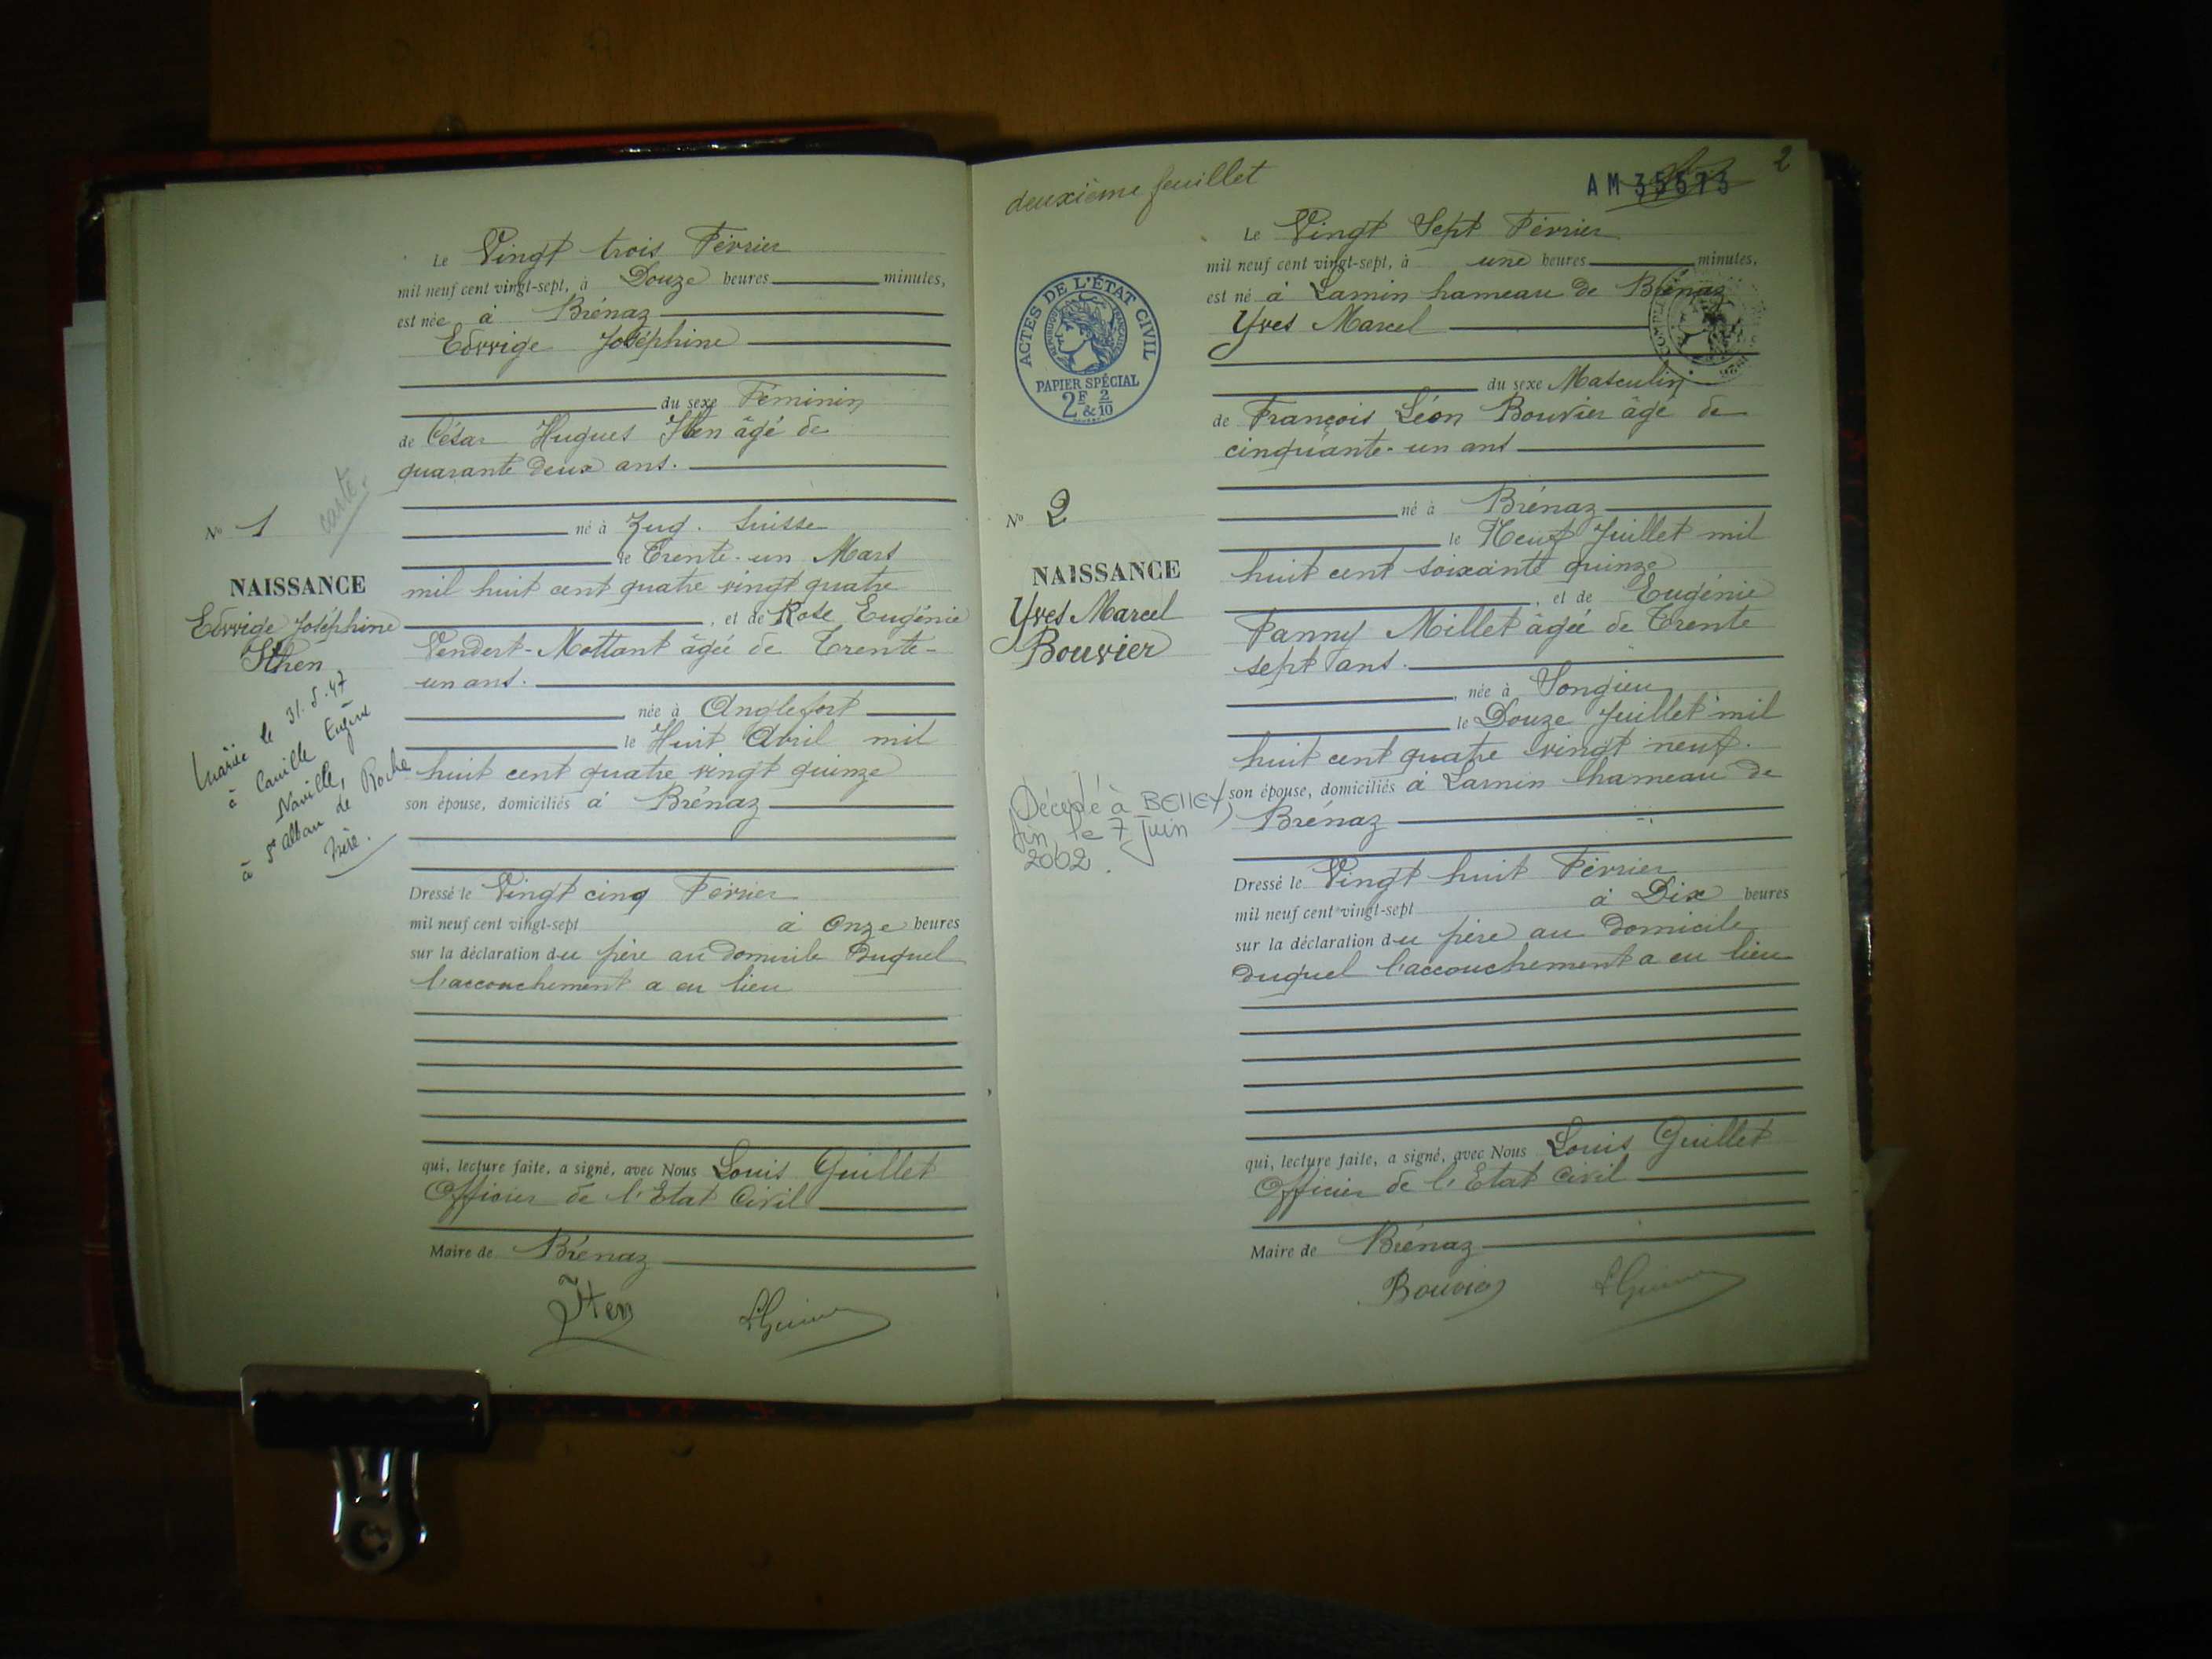 Le Vingt trois Février
mil neuf cent vingt-sept, à Douze heures minutes,
est née à Brénaz
Edvvige Joséphine
du sexe Féminin
de César Hugues Iten âgé de
quarante deux ans.
né à Zug. Suisse
le Trente-un Mars
mil huit cent quatre vingt quatre
, et de Rose Eugénie
Vendert-Mottant âgée de Trente-
un ans.
née à Anglefort
le Huit Avril mil
huit cent quatre vingt quinze
son épouse, domiciliés à Brénaz
Dressé le Vingt cinq Février
mil neuf cent vingt-sept à Onze heures
sur la déclaration du père au domicile duquel
l'accouchement a eu lieu
qui, lecture faite, a signé, avec Nous Louis Guillet
Officier de l'Etat Civil
Maire de Brénaz
Iten
carte.
No 1
NAISSANCE
Edvvige Joséphine
Ithen
Mariée le 31.5.47
à Camille Eugène
Naville,
à St Alban de Roche
Isère.
deuxième feuillet
AM 35573
2
ACTES DE L'ÉTAT CIVIL
RÉPUBLIQUE FRANÇAISE
PAPIER SPÉCIAL
2F & 2/10
Le Vingt Sept Février
mil neuf cent vingt-sept, à une heures minutes,
est né à Lamin hameau de Brénaz
Yves Marcel
du sexe Masculin
de François Léon Bouvier âgé de
cinquante-un ans
né à Brénaz
le Neuf Juillet mil
huit cent soixante quinze
, et de Eugénie
Fanny Millet âgée de Trente
sept ans.
, née à Songieu
le Douze Juillet mil
huit cent quatre vingt neuf.
son épouse, domiciliés à Lamin hameau de
Brénaz
Dressé le Vingt huit Février
mil neuf cent vingt-sept à Dix heures
sur la déclaration du père au domicile
duquel l'accouchement a eu lieu
qui, lecture faite, a signé, avec Nous Louis Guillet
Officier de l'Etat Civil
Maire de Brénaz
Bouvier
No 2
NAISSANCE
Yves Marcel
Bouvier
Décédé à BELLEY,
Ain, le 7 Juin
2002.